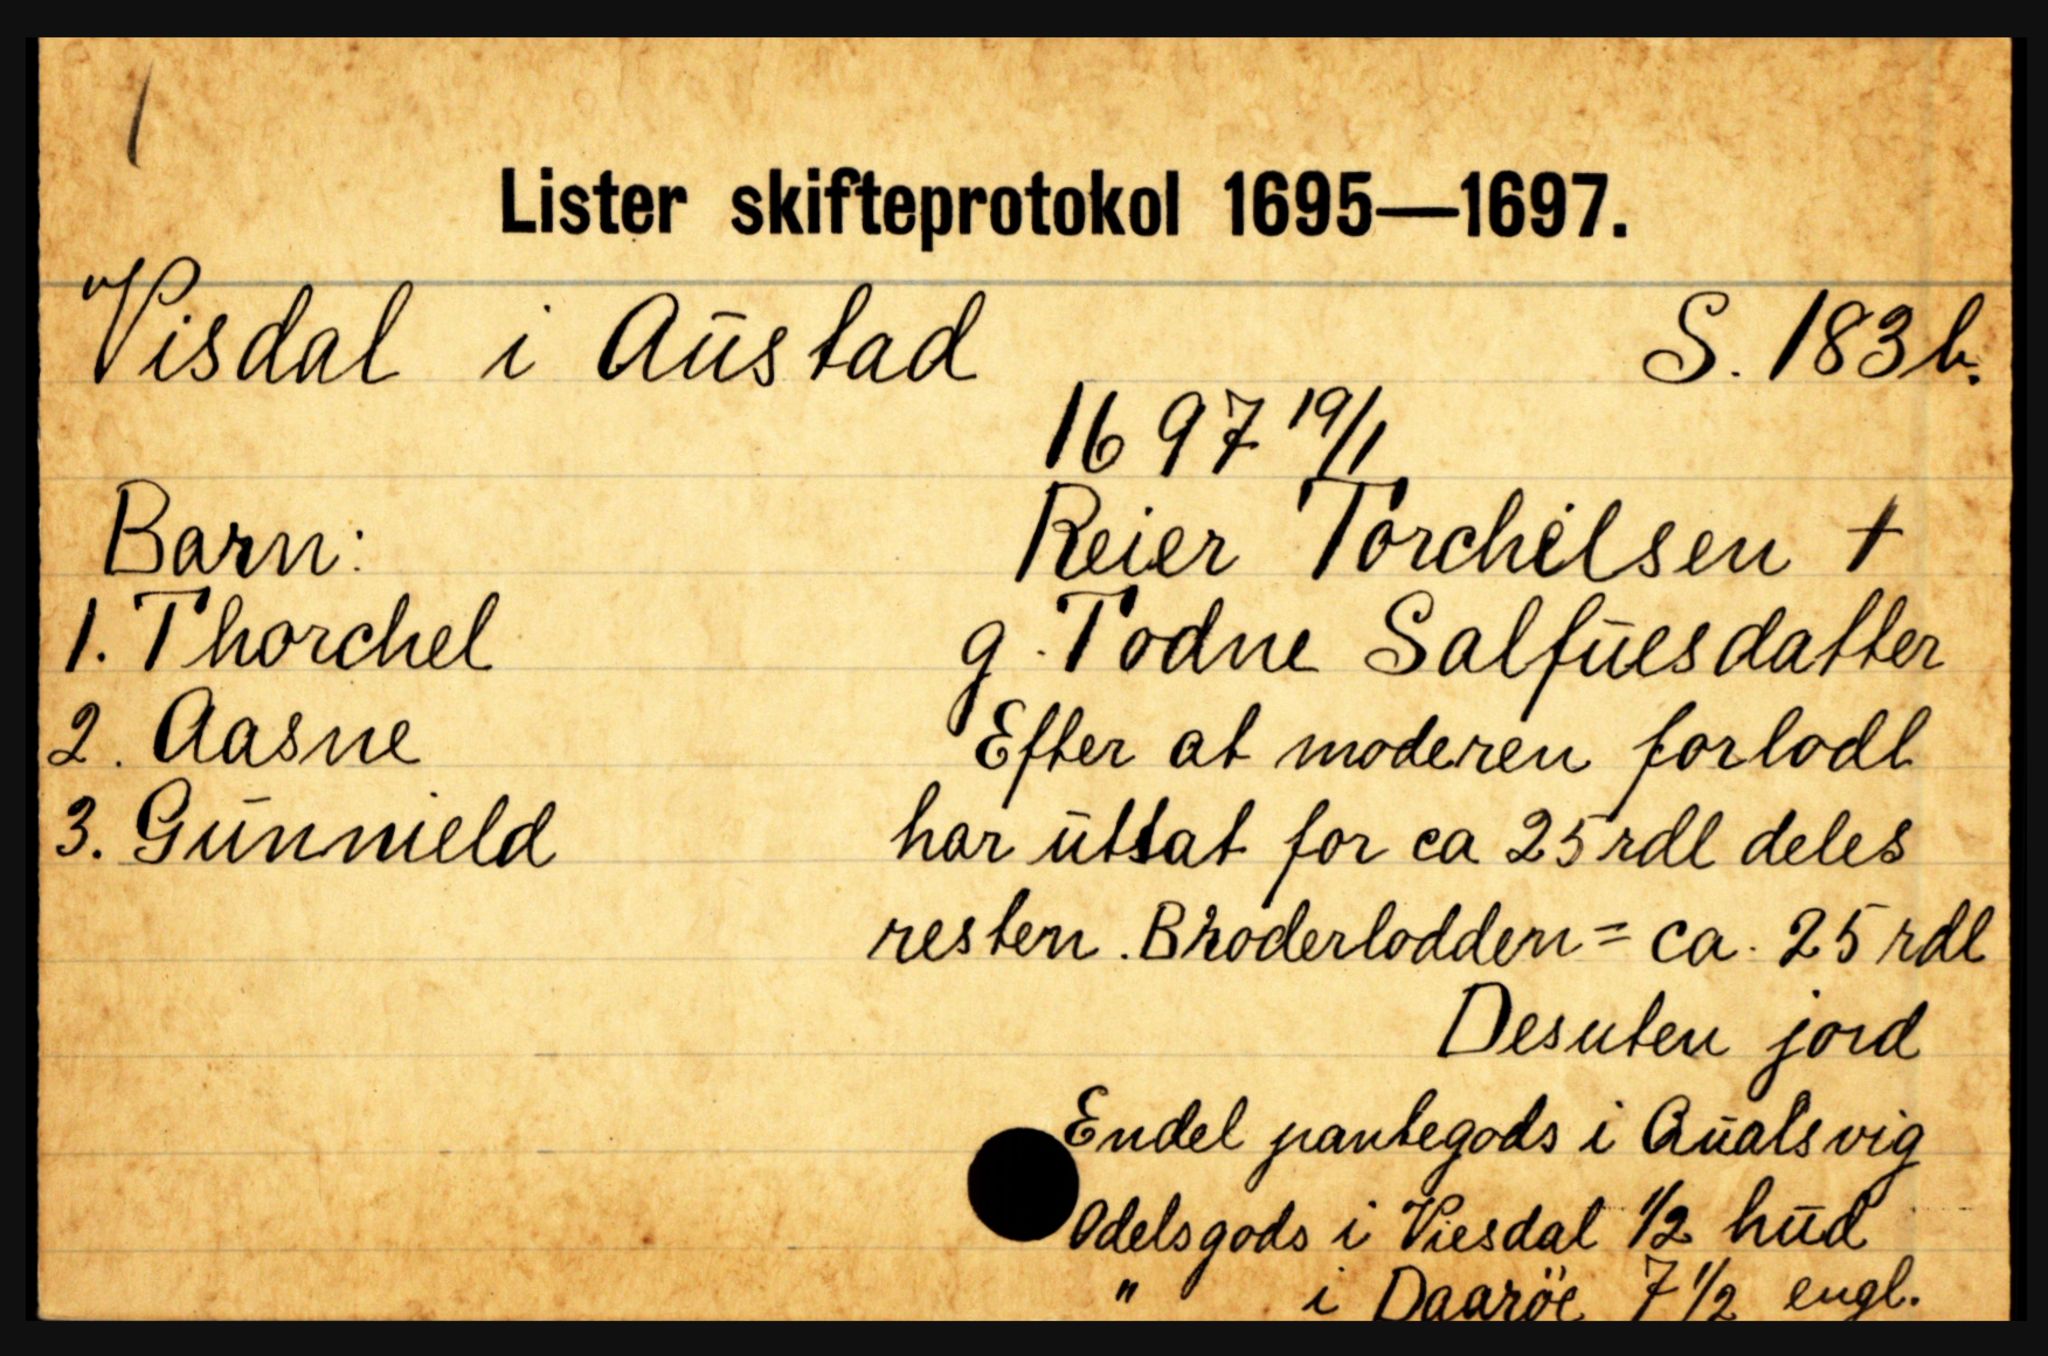 1
Lister skifteprotokol 1695—1697.
Visdal i Aūstad S. 183 b.
1697 19/1
Barn: Reier Torchilsen †
1. Thorchel g. Todne Salfūesdatter
2. Aasne Efter at moderen forlodt
3. Gūnnield har ūttat for ca 25 rdl deles
resten. Broderlodden = ca. 25 rdl
Desuten jord
Endel pantegods i Qūalsvig
Odelsgods i Viesdal 1/2 hūd
" i Daaröe 7 1/2 engl.